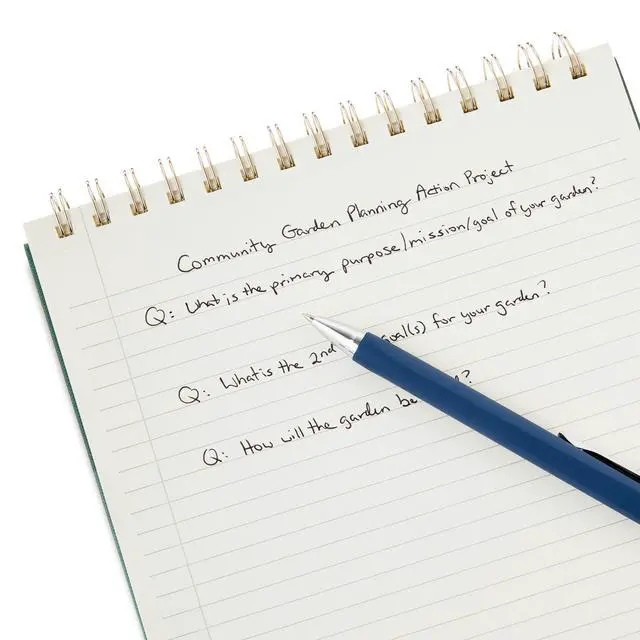 Community Garden Planning Action Project
Q: What is the primary purpose/mission/goal of your garden?
Q: What is the 2nd goal(s) for your garden?
Q: How will the garden be ?